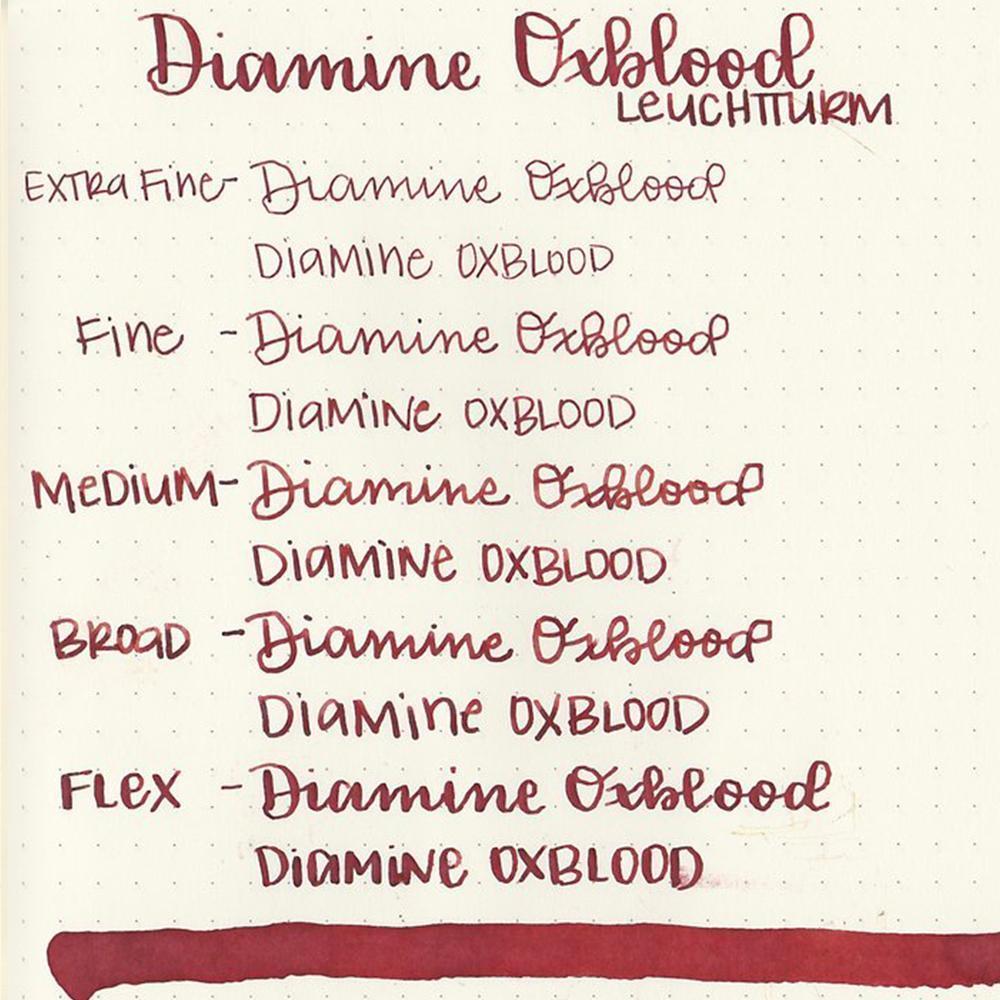 Diamine Oxblood
LEUCHTTURM
EXTRA Fine- Diamine Oxblood
DiaMine OXBLOOD
Fine - Diamine Oxblood
DiaMiNe OXBLOOD
MeDiuM- Diamine Oxblood
DiaMiNe OXBLOOD
BROaD - Diamine Oxblood
DiaMine OXBLOOD
FLex - Diamine Oxblood
DiaMiNe OXBLOOD